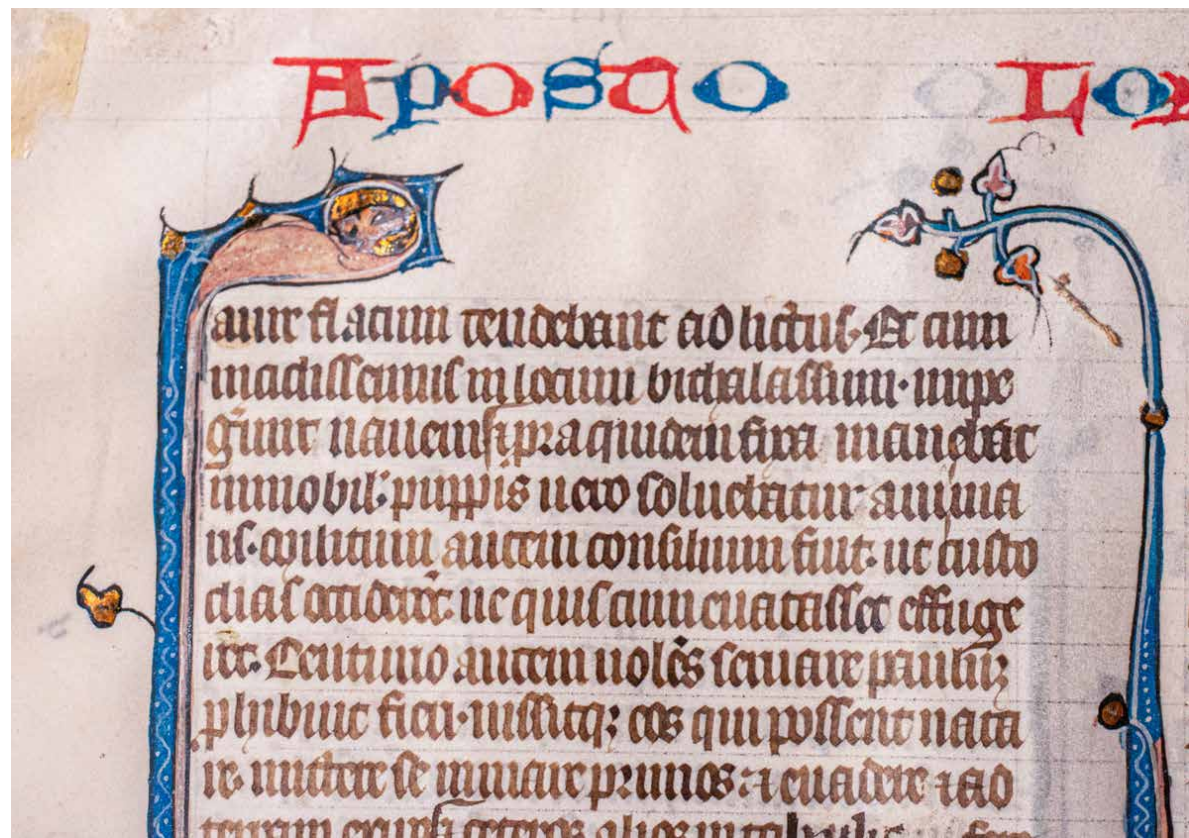 Aposto Lor
aure flatum tendebant ad lictus. Et cum
incidissemus in locum bithalassum. impe
gerunt nauem ⁊ pra quidem fixa manebat
immobil'. puppis uero soluebatur a ui ma
ris. militum autem consilium fuit. ut custo
dias occiderēt. ne quis cum enatasset effuge
ret. Centurio autem uolēs seruare paulūz
ꝓhibuit fieri. iussitqꝫ eos qui possent nata
re. mittere se in mare primos ⁊ euadere ⁊ ad
terram exire ceteros alios in tabulis